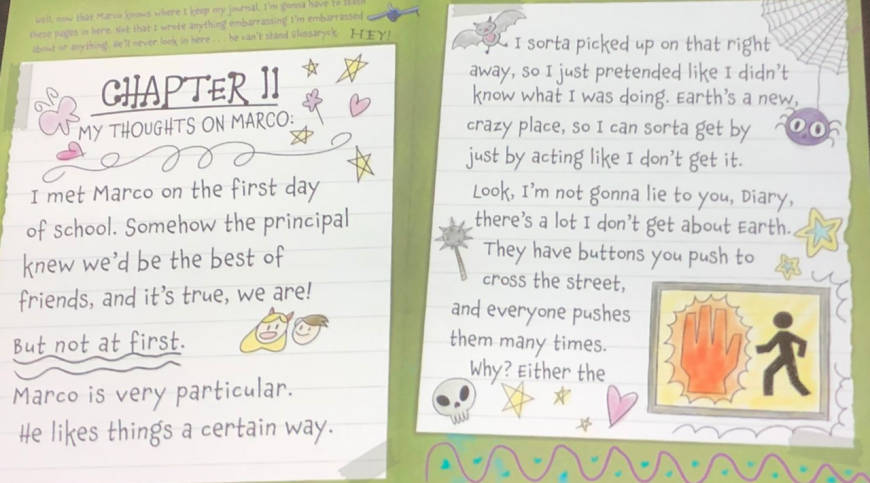 Well, now that Marco knows where I keep my journal, I'm gonna have to stash
these pages in here. Not that I wrote anything embarrassing I'm embarrassed
about or anything. He'll never look in here . . . he can't stand Glossaryck.
HEY!
CHAPTER 11
MY THOUGHTS ON MARCO:
I met Marco on the first day
of school. Somehow the principal
knew we'd be the best of
friends, and it's true, we are!
But not at first.
Marco is very particular.
He likes things a certain way.
I sorta picked up on that right
away, so I just pretended like I didn't
know what I was doing. Earth's a new,
crazy place, so I can sorta get by
just by acting like I don't get it.
Look, I'm not gonna lie to you, Diary,
there's a lot I don't get about Earth.
They have buttons you push to
cross the street,
and everyone pushes
them many times.
Why? Either the